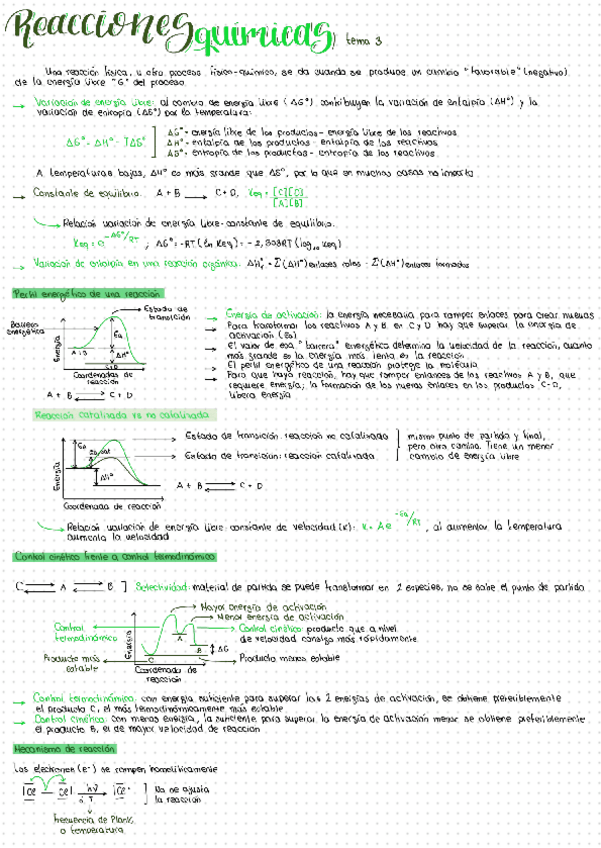 Reacciones químicas, tema 3
Una reacción física, u otro proceso físico-químico, se da cuando se produce un cambio "favorable" (negativo)
de la energía libre "G" del proceso
Variación de energía libre: al cambio de energía libre (ΔG°) contribuyen la variación de entalpía (ΔH°) y la
variación de entropía (ΔS°) por la temperatura:
ΔG° = ΔH° - TΔS°
ΔG° = energía libre de los productos - energía libre de los reactivos
ΔH° = entalpía de los productos - entalpía de los reactivos
ΔS° = entropía de los productos - entropía de los reactivos
A temperaturas bajas, ΔH° es más grande que ΔS°, por lo que en muchos casos no importa
Constante de equilibrio: A + B → C + D, Keq = [C][D] / [A][B]
Relación variación de energía libre-constante de equilibrio:
Keq = e^-ΔG°/RT ; ΔG° = -RT (ln Keq) = -2,303RT (log10 Keq)
Variación de entalpía en una reacción orgánica: ΔH°r = Σ(ΔH°) enlaces rotos - Σ(ΔH°) enlaces formados
Perfil energético de una reacción
Estado de
transición
Barrera
energética
Ea
A + B
ΔH°
C + D
Energía
Coordenadas de
reacción
A + B ⇌ C + D
Energía de activación: la energía necesaria para romper enlaces para crear nuevos
Para transformar los reactivos A y B en C y D hay que superar la energía de
activación (Ea)
El valor de esa "barrera" energética determina la velocidad de la reacción, cuanto
más grande es la energía más lenta es la reacción
El perfil energético de una reacción protege la molécula
Para que haya reacción, hay que romper enlaces de los reactivos A y B, que
requiere energía; la formación de los nuevos enlaces en los productos C-D,
libera energía
Reacción catalizada vs no catalizada
Ea
Ea cat
ΔH°
Energía
Coordenada de reacción
Estado de transición: reacción no catalizada
Estado de transición: reacción catalizada
mismo punto de partida y final,
pero otro camino. Tiene un menor
cambio de energía libre
A + B ⇌ C + D
Relación variación de energía libre-constante de velocidad (K): K = Ae^-Ea/RT, al aumentar la temperatura
aumenta la velocidad
Control cinético frente a control termodinámico
C ⇌ A ⇌ B ] Selectividad: material de partida se puede transformar en 2 especies, no se sabe el punto de partida
Mayor energía de activación
Menor energía de activación
Control
termodinámico
Control cinético: producto que a nivel
de velocidad cataliza más rápidamente
Energía
A
B
C
ΔG
Producto más
estable
Producto menos estable
Coordenada de
reacción
Control termodinámico: con energía suficiente para superar las 2 energías de activación, se obtiene preferiblemente
el producto C, el más termodinámicamente más estable
Control cinético: con menos energía, la suficiente para superar la energía de activación menor se obtiene preferiblemente
el producto B, el de mayor velocidad de reacción
Mecanismo de reacción
Los electrones (e⁻) se rompen homolíticamente
hν
ó T
No se ajusta
la reacción
frecuencia de Plank
o temperatura